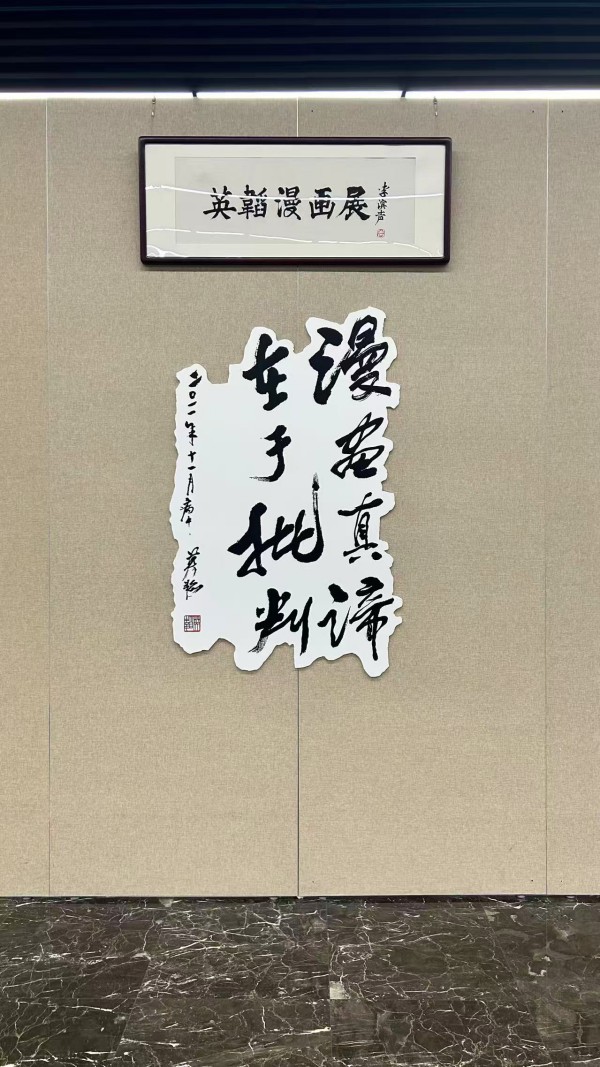 英韜漫画展
李滨声
漫画真谛
在于批判
二〇一一年十一月
英韬